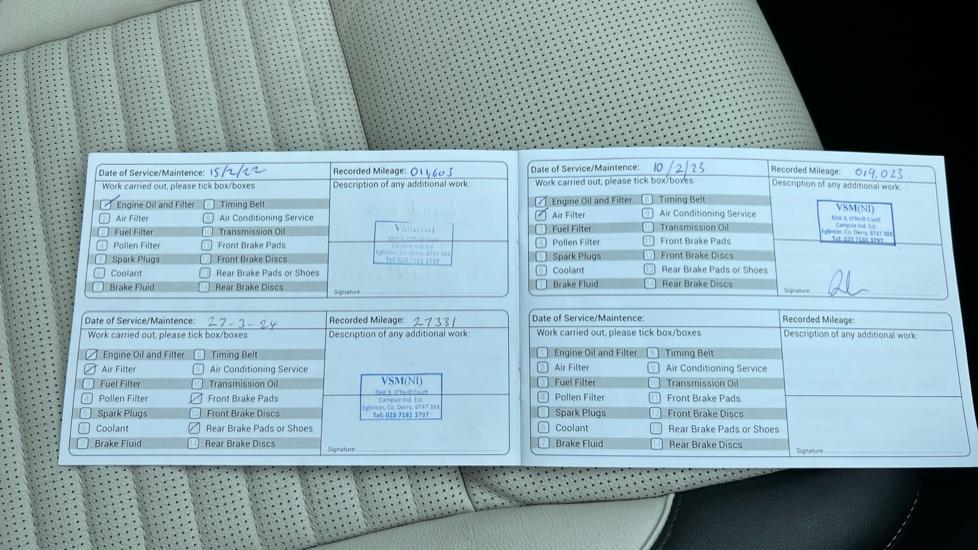 Date of Service/Maintence: 15/2/22
Recorded Mileage: 011,603
Work carried out, please tick box/boxes
Description of any additional work:
Engine Oil and Filter
Timing Belt
Air Filter
Air Conditioning Service
Fuel Filter
Transmission Oil
Pollen Filter
Front Brake Pads
Spark Plugs
Front Brake Discs
Coolant
Rear Brake Pads or Shoes
Brake Fluid
Rear Brake Discs
Unit 3, O'Neill Court
Campsie Ind. Est.
Eglinton, Co. Derry, BT47 3XX
Tel: 028 7181 3797
Signature
Date of Service/Maintence: 10/2/23
Recorded Mileage: 019,023
Work carried out, please tick box/boxes
Description of any additional work:
Engine Oil and Filter
Timing Belt
Air Filter
Air Conditioning Service
Fuel Filter
Transmission Oil
Pollen Filter
Front Brake Pads
Spark Plugs
Front Brake Discs
Coolant
Rear Brake Pads or Shoes
Brake Fluid
Rear Brake Discs
VSM(NI)
Unit 3, O'Neill Court
Campsie Ind. Est.
Eglinton, Co. Derry, BT47 3XX
Tel: 028 7181 3797
Signature
Date of Service/Maintence: 27-3-24
Recorded Mileage: 27331
Work carried out, please tick box/boxes
Description of any additional work:
Engine Oil and Filter
Timing Belt
Air Filter
Air Conditioning Service
Fuel Filter
Transmission Oil
Pollen Filter
Front Brake Pads
Spark Plugs
Front Brake Discs
Coolant
Rear Brake Pads or Shoes
Brake Fluid
Rear Brake Discs
VSM(NI)
Unit 3, O'Neill Court
Campsie Ind. Est.
Eglinton, Co. Derry, BT47 3XX
Tel: 028 7181 3797
Signature
Date of Service/Maintence:
Recorded Mileage:
Work carried out, please tick box/boxes
Description of any additional work:
Engine Oil and Filter
Timing Belt
Air Filter
Air Conditioning Service
Fuel Filter
Transmission Oil
Pollen Filter
Front Brake Pads
Spark Plugs
Front Brake Discs
Coolant
Rear Brake Pads or Shoes
Brake Fluid
Rear Brake Discs
Signature